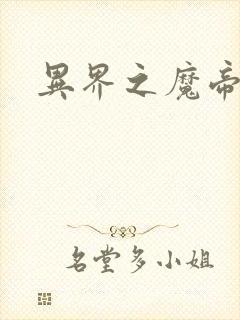 異界之魔帝
名堂多小姐